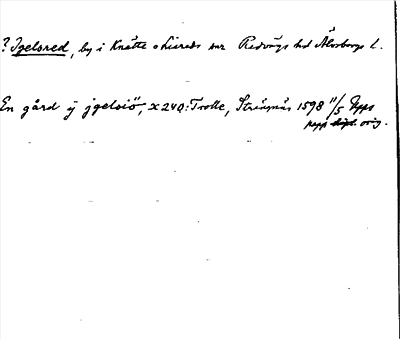 ? Igelsred, by i Knätte o Liareds snr Redvägs hd Älvsborgs l.
En gård ij jgelsiö, X 240: Trolle, Strängnäs 1598 11/5 Upps
papp orig.